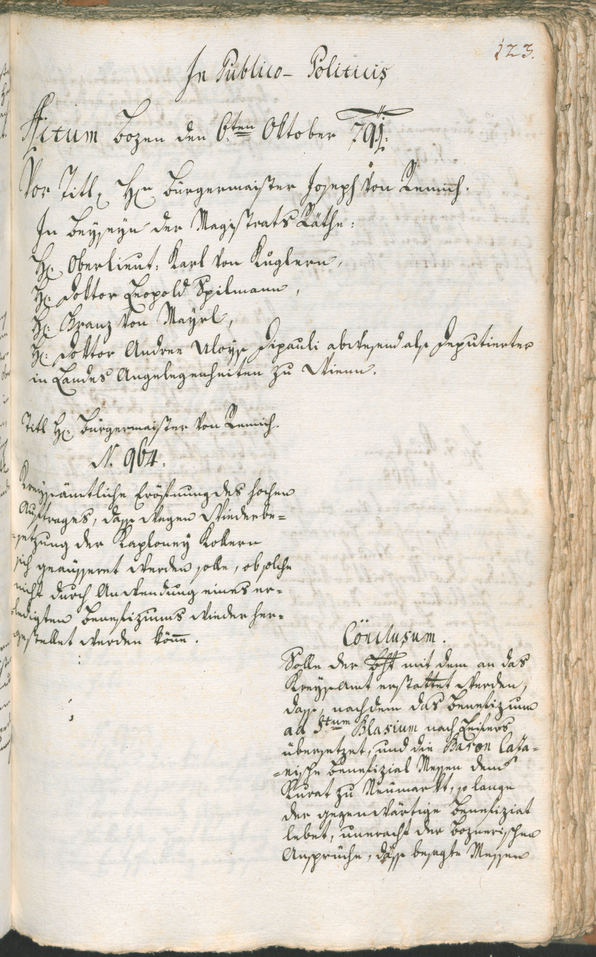 123.
In Publico-Politicis
Actum Bozen den 6ten Oktober 791.
Vor Titl. Hn Bürgermaister Joseph von Remich.
In Beyseyn der Magistrats Räthe:
H: Oberlieut: Karl von Kuglern,
H: Doktor Leopold Spilmann,
H: Franz von Mayrl,
H: Doktor Andree Aloyss Dipauli abwesend als Deputierter
in Landes Angelegenheiten zu Wienn.
Titl H: Bürgermaister von Remich.
N. 964.
Kreysämtliche Eröfnung des hochen
Auftrages, dass wegen Wiederbe-
setzung der Kaploney Kollern
sich geäusseret werden solle, ob solche
nicht durch Anwendung eines er-
ledigten Benefiziums wieder her-
gestellet werden könne.
Conclusum.
Solle der mit dem an das
Kreysamt erstattet werden,
dass, nachdem das Benefizium
ad Stum Blasium nach Leifers
übersetzet, und die Baron Cata-
nische Benefizial Messen dem
Kurat zu Neumarkt, so lange
der gegenwärtige Benefiziat
lebet, uneracht der Boznerischen
Ansprüche, dass besagte Messen